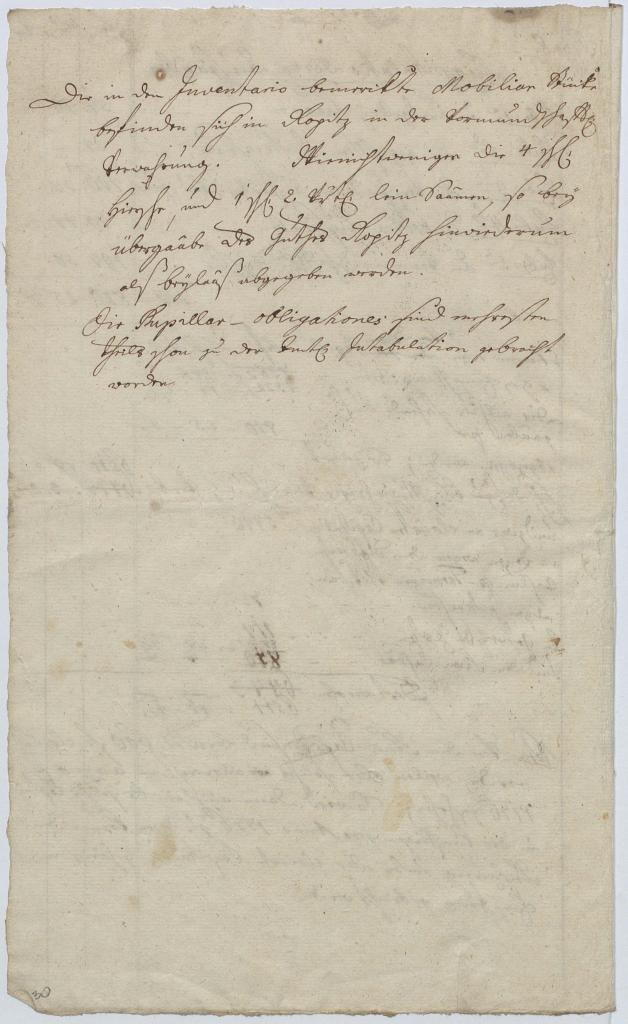 Die in dem Inventario bemerckte Mobiliar Stücke
befinden sich in Ropitz in der Vormundschafftl.
Verwahrung. Wienichtweniger die 4 schl.
Hierse, und 1 schl. 2 Vrtl. lein Saamen, so bey
übergaabe des Guthes Ropitz hinwiederum
als beylaaß abgegeben werden.
Die Pupillar-obligationes sind mehresten
theils schon zu der Intabulation gebracht
worden
30